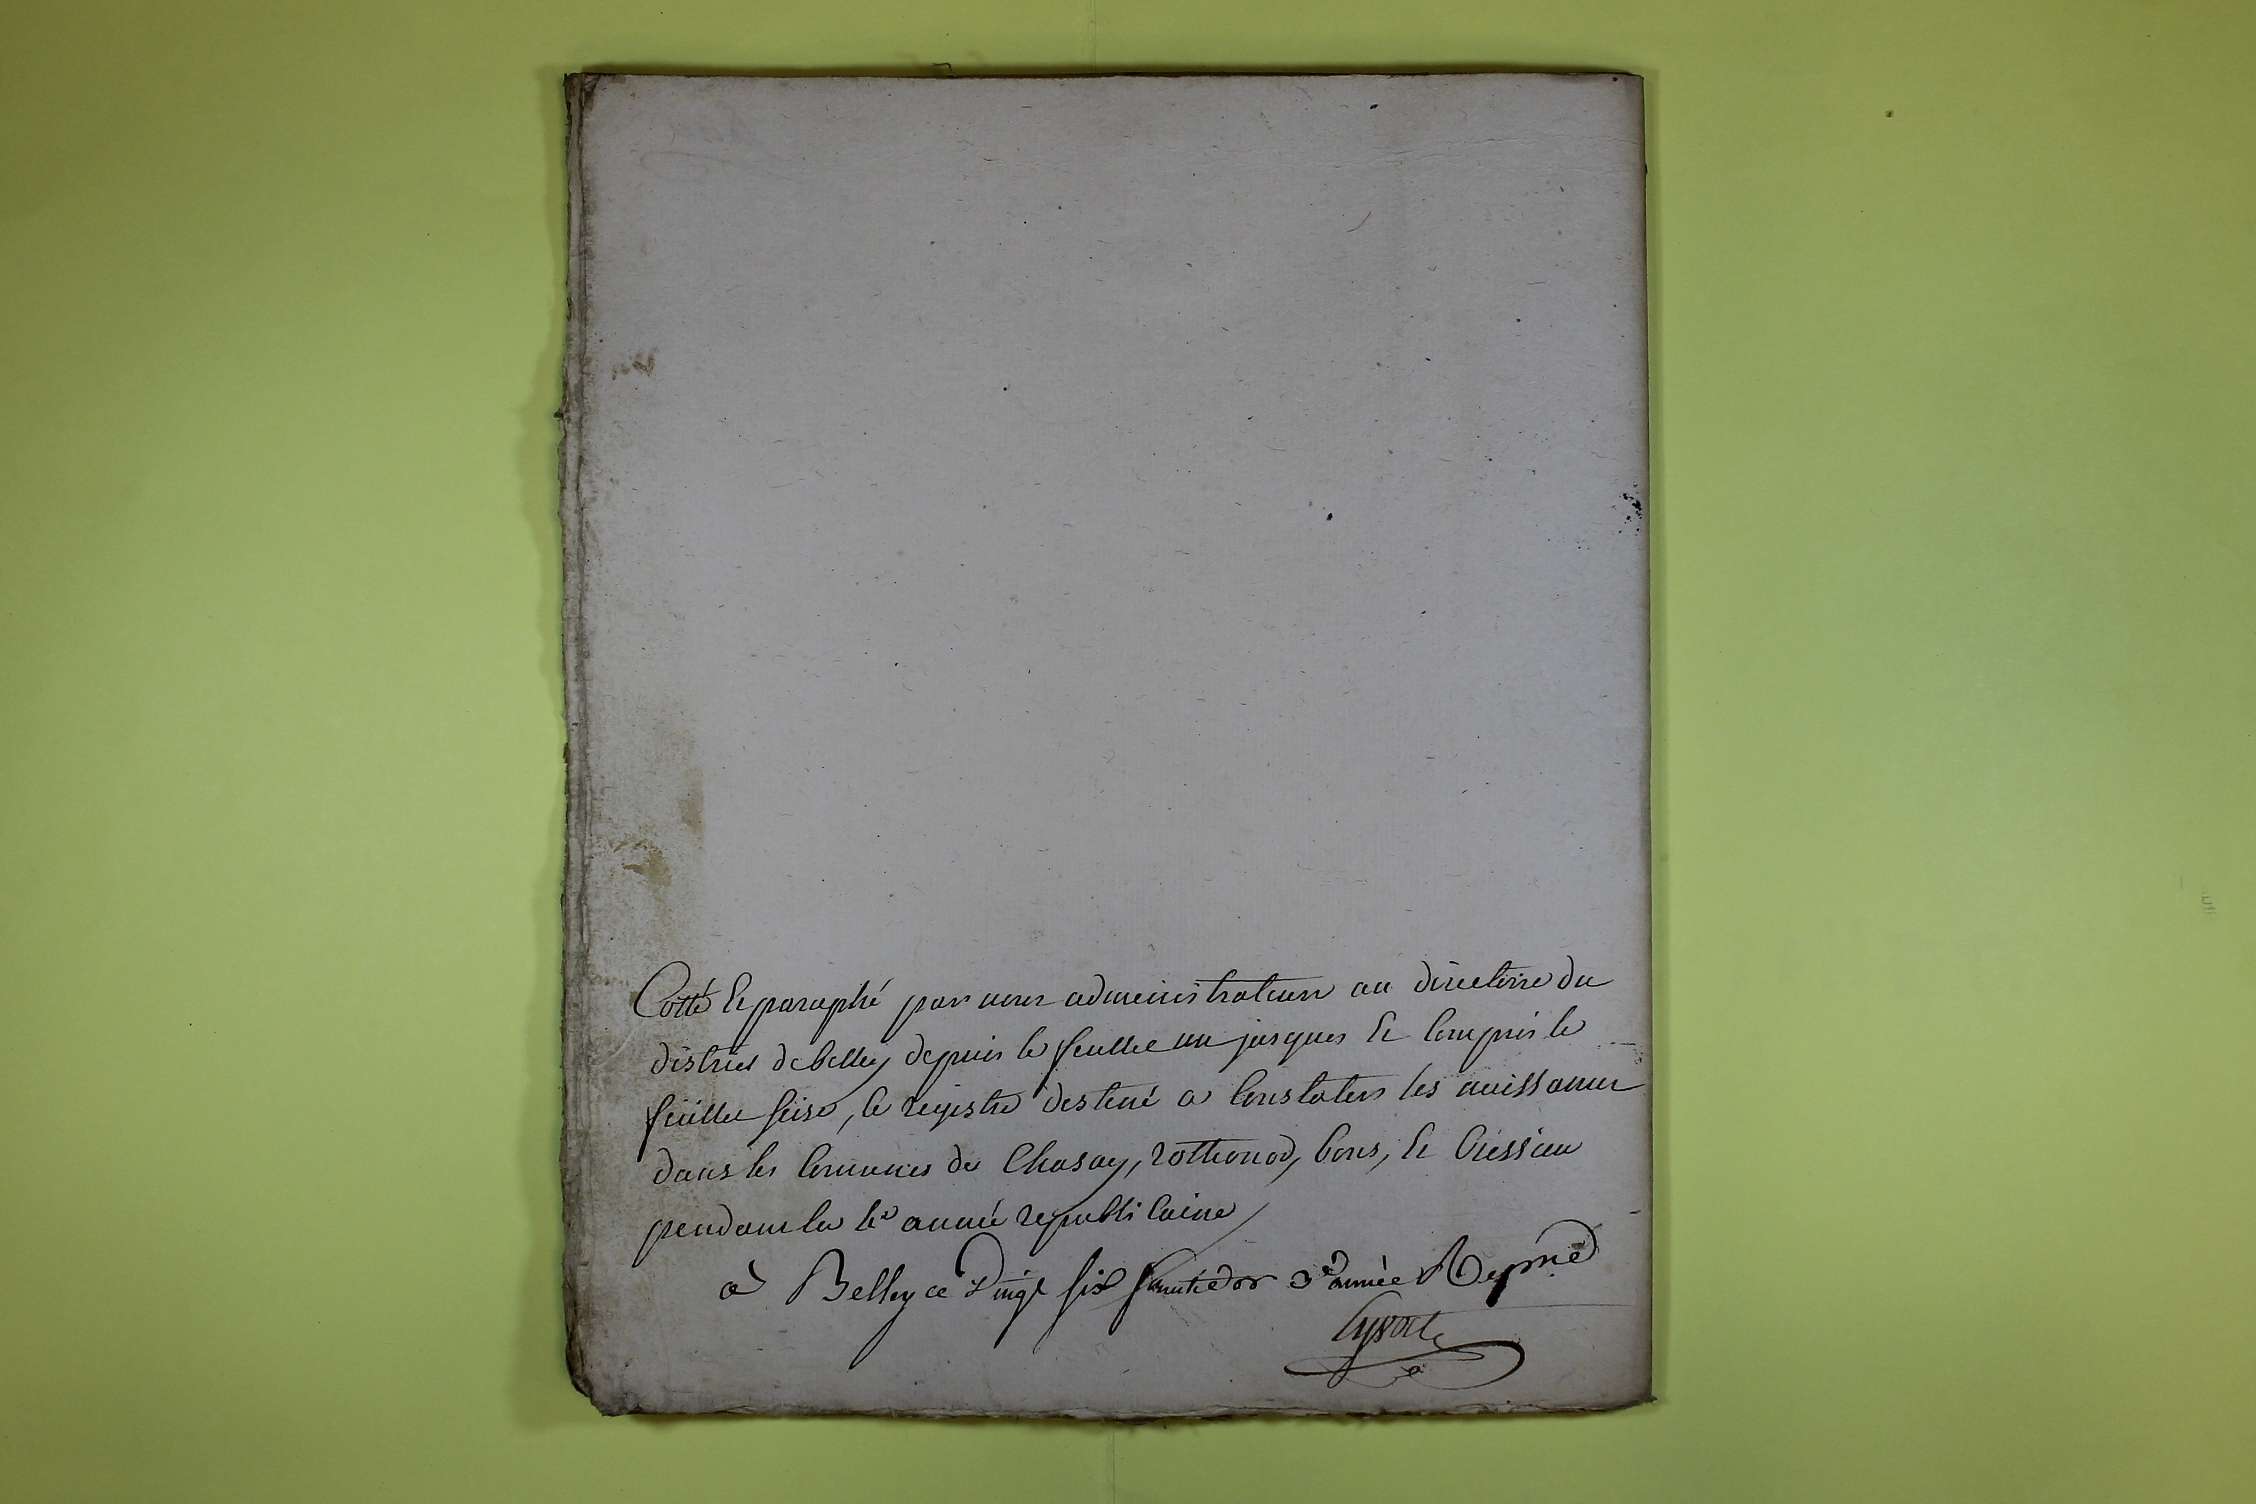 Cotté Et paraphé par nous administrateur au directoire du
district de belley depuis le feuillet un jusques Et Compris le
feuillet seise, le registre destiné a Constater les naissances
dans les Communes de Chasay, rothonod, bons, Et Cressieu
pendant la 4e année republicaine
a Belley ce vingt six fructidor 3e année Repne